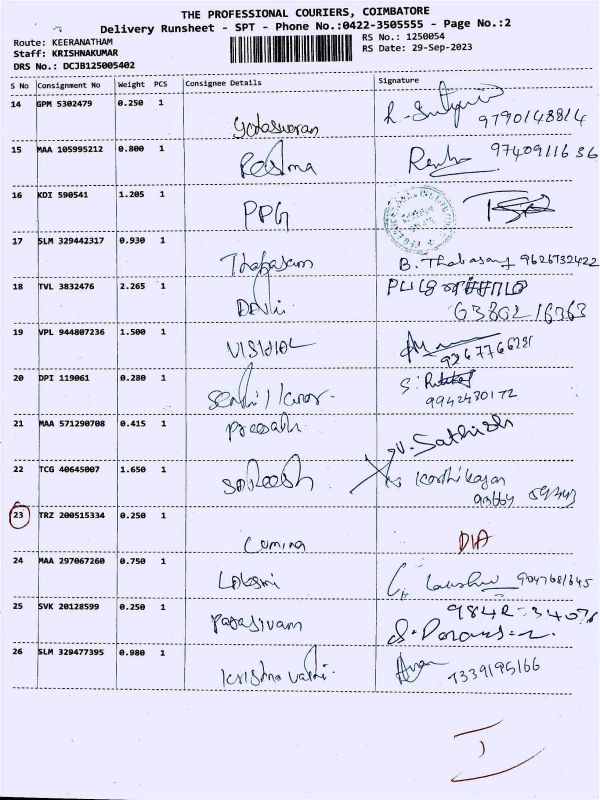 THE PROFESSIONAL COURIERS, COIMBATORE
Delivery Runsheet - SPT - Phone No.:0422-3505555 - Page No.:2
Route: KEERANATHAM
RS No.: 1250054
Staff: KRISHNAKUMAR
RS Date: 29-Sep-2023
DRS No.: DCJB125005402
S No Consignment No Weight PCS Consignee Details Signature
14 GPM 5302479 0.250 1
9790148814
15 MAA 105995212 0.800 1
9740911636
16 KDI 590541 1.205 1
PPG
17 SLM 329442317 0.930 1
B. Thabasany 9626732422
18 TVL 3832476 2.265 1
Devi
6380216363
19 VPL 944807236 1.500 1
VISHAL
9367766231
20 DPI 119061 0.280 1
Senthil kumar
9942430172
21 MAA 571290708 0.415 1
Prasath
V. Sathish
22 TCG 40645007 1.650 1
Sareesh Karthikayan
23 TRZ 200515334 0.250 1
Cumina DIA
24 MAA 297067260 0.750 1
Laksmi
25 SVK 20128599 0.250 1
Parasivam
26 SLM 329477395 0.980 1
Krishna vathi 7339195166